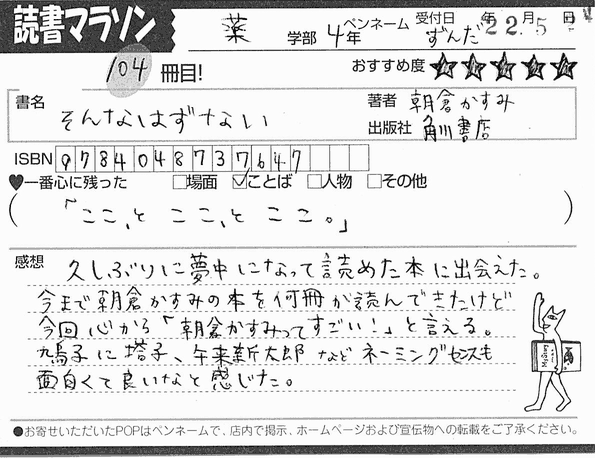 読書マラソン
薬 学部 4年 ペンネーム ずんだ 受付日 年 22.月 5 日
104 冊目!
おすすめ度 ★★★★★
書名 そんなはずない
著者 朝倉かすみ
出版社 角川書店
ISBN 9784048737647
♥一番心に残った □場面 ☑ことば □人物 □その他
(「ここ、と ここ、と ここ。」)
感想 久しぶりに夢中になって読めた本に出会えた。
今まで朝倉かすみの本を何冊か読んできたけど
今回心から「朝倉かすみってすごい!」と言える。
鳩子に塔子、午来新太郎 などネーミングセンスも
面白くて良いなと感じた。
●お寄せいただいたPOPはペンネームで、店内で掲示、ホームページおよび宣伝物への転載をご了承ください。